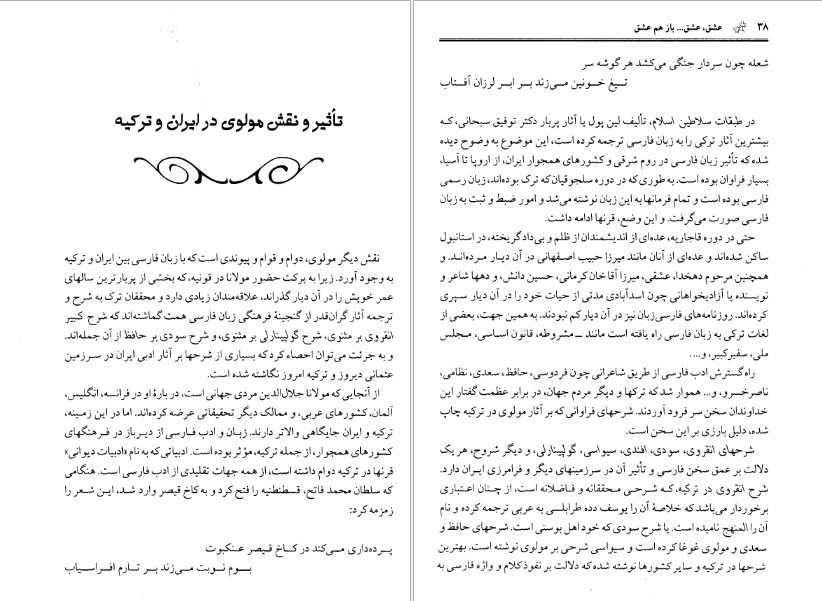 تأثیر و نقش مولوی در ایران و ترکیه
نقش دیگر مولوی، دوام و قوام و پیوندی است که با زبان فارسی بین ایران و ترکیه
به وجود آورد. زیرا به برکت حضور مولانا در قونیه، که بخشی از پربارترین سالهای
عمر خویش را در آن دیار گذراند، علاقه‌مندان زیادی دارد و محققان ترک به شرح و
ترجمه آثار گران‌قدر از گنجینهٔ فرهنگی زبان فارسی همت گماشته‌اند که شرح کبیر
انقروی بر مثنوی، شرح گولپینارلی بر مثنوی، و شرح سودی بر حافظ از آن جمله‌اند.
و به جرئت می‌توان احصاء کرد که بسیاری از شرحها بر آثار ادبی ایران در سرزمین
عثمانی دیروز و ترکیه امروز نگاشته شده است.
از آنجایی که مولانا جلال‌الدین مردی جهانی است، در بارهٔ او در فرانسه، انگلیس،
آلمان، کشورهای عربی، و ممالک دیگر تحقیقاتی عرضه کرده‌اند. اما در این زمینه،
ترکیه و ایران جایگاهی والاتر دارند. زبان و ادب فارسی از دیرباز در فرهنگهای
کشورهای همجوار، از جمله ترکیه، مؤثر بوده است. ادبیاتی که به نام «ادبیات دیوانی»
قرنها در ترکیه دوام داشته است، از همه جهات تقلیدی از ادب فارسی است. هنگامی
که سلطان محمد فاتح، قسطنطنیه را فتح کرد و به کاخ قیصر وارد شد، این شعر را
زمزمه کرد:
پرده‌داری می‌کند در کاخ قیصر عنکبوت
بوم نوبت می‌زند بر تارم افراسیاب
۳۸ عشق، عشق... باز هم عشق
شعله چون سردار جنگی می‌کشد هر گوشه سر
تیغ خونین می‌زند بر ابر لرزان آفتاب
در طبقات سلاطین اسلام، تألیف لین پول یا آثار پربار دکتر توفیق سبحانی، که
بیشترین آثار ترکی را به زبان فارسی ترجمه کرده است، این موضوع به وضوح دیده
شده که تأثیر زبان فارسی در روم شرقی و کشورهای همجوار ایران، از اروپا تا آسیا،
بسیار فراوان بوده است. به طوری که در دوره سلجوقیان که ترک بوده‌اند، زبان رسمی
فارسی بوده است و تمام فرمانها به این زبان نوشته می‌شد و امور ضبط و ثبت به زبان
فارسی صورت می‌گرفت. و این وضع، قرنها ادامه داشت.
حتی در دوره قاجاریه، عده‌ای از اندیشمندان از ظلم و بی‌دادگریخته، در استانبول
ساکن شده‌اند و عده‌ای از آنان مانند میرزا حبیب اصفهانی در آن دیار مرده‌اند. و
همچنین مرحوم دهخدا، عشقی، میرزا آقاخان کرمانی، حسین دانش، و دهها شاعر و
نویسنده یا آزادیخواهانی چون اسدآبادی مدتی از حیات خود را در آن دیار سپری
کرده‌اند. روزنامه‌های فارسی‌زبان نیز در آن دیار کم نبودند. به همین جهت، بعضی از
لغات ترکی به زبان فارسی راه یافته است مانند ــ مشروطه، قانون اساسی، مجلس
ملی، سفیرکبیر، و....
راه گسترش ادب فارسی از طریق شاعرانی چون فردوسی، حافظ، سعدی، نظامی،
ناصرخسرو، و... هموار شد که ترکها و دیگر مردم جهان، در برابر عظمت گفتار این
خداوندان سخن سر فرود آوردند. شرحهای فراوانی که بر آثار مولوی در ترکیه چاپ
شده، دلیل بارزی بر این سخن است.
شرحهای انقروی، سودی، افندی، سیواسی، گولپینارلی، و دیگر شروح، هر یک
دلالت بر عمق سخن فارسی و تأثیر آن در سرزمینهای دیگر و فرامرزی ایران دارد.
شرح انقروی در ترکیه، که شرحی محققانه و فاضلانه است، از چنان اعتباری
برخوردار می‌باشد که خلاصهٔ آن را یوسف دده طرابلسی به عربی ترجمه کرده و نام
آن را المنهج نامیده است. یا شرح سودی که خود اهل بوسنی است. شرحهای حافظ و
سعدی و مولوی غوغا کرده است و سیواسی شرحی بر مولوی نوشته است. بهترین
شرحها در ترکیه و سایر کشورها نوشته شده که دلالت بر نفوذ کلام و واژه فارسی به